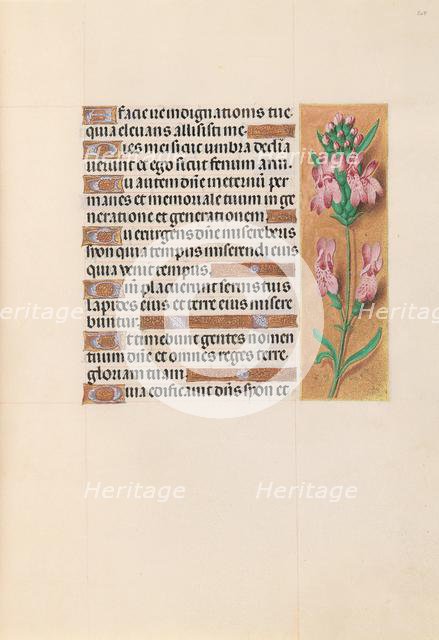 A facie ire indignationis tue
quia elevans allisisti me
Dies mei sicut umbra decli
naverunt et ego sicut fenum arui
Tu autem dñe in eternũ per
manes et memoriale tuum in ge
neratione et generationem
Tu exurgens dñe misereberis
syon quia tempus miserendi eius
quia venit tempus
Quoniam placuerunt servis tuis
lapides eius et terre eius misere
buntur
Et timebunt gentes nomen
tuum dñe et omnes reges terre
gloriam tuam
Quia edificavit dñs syon et
Heritage
Heritage
Heritage
Heritage
Heritage